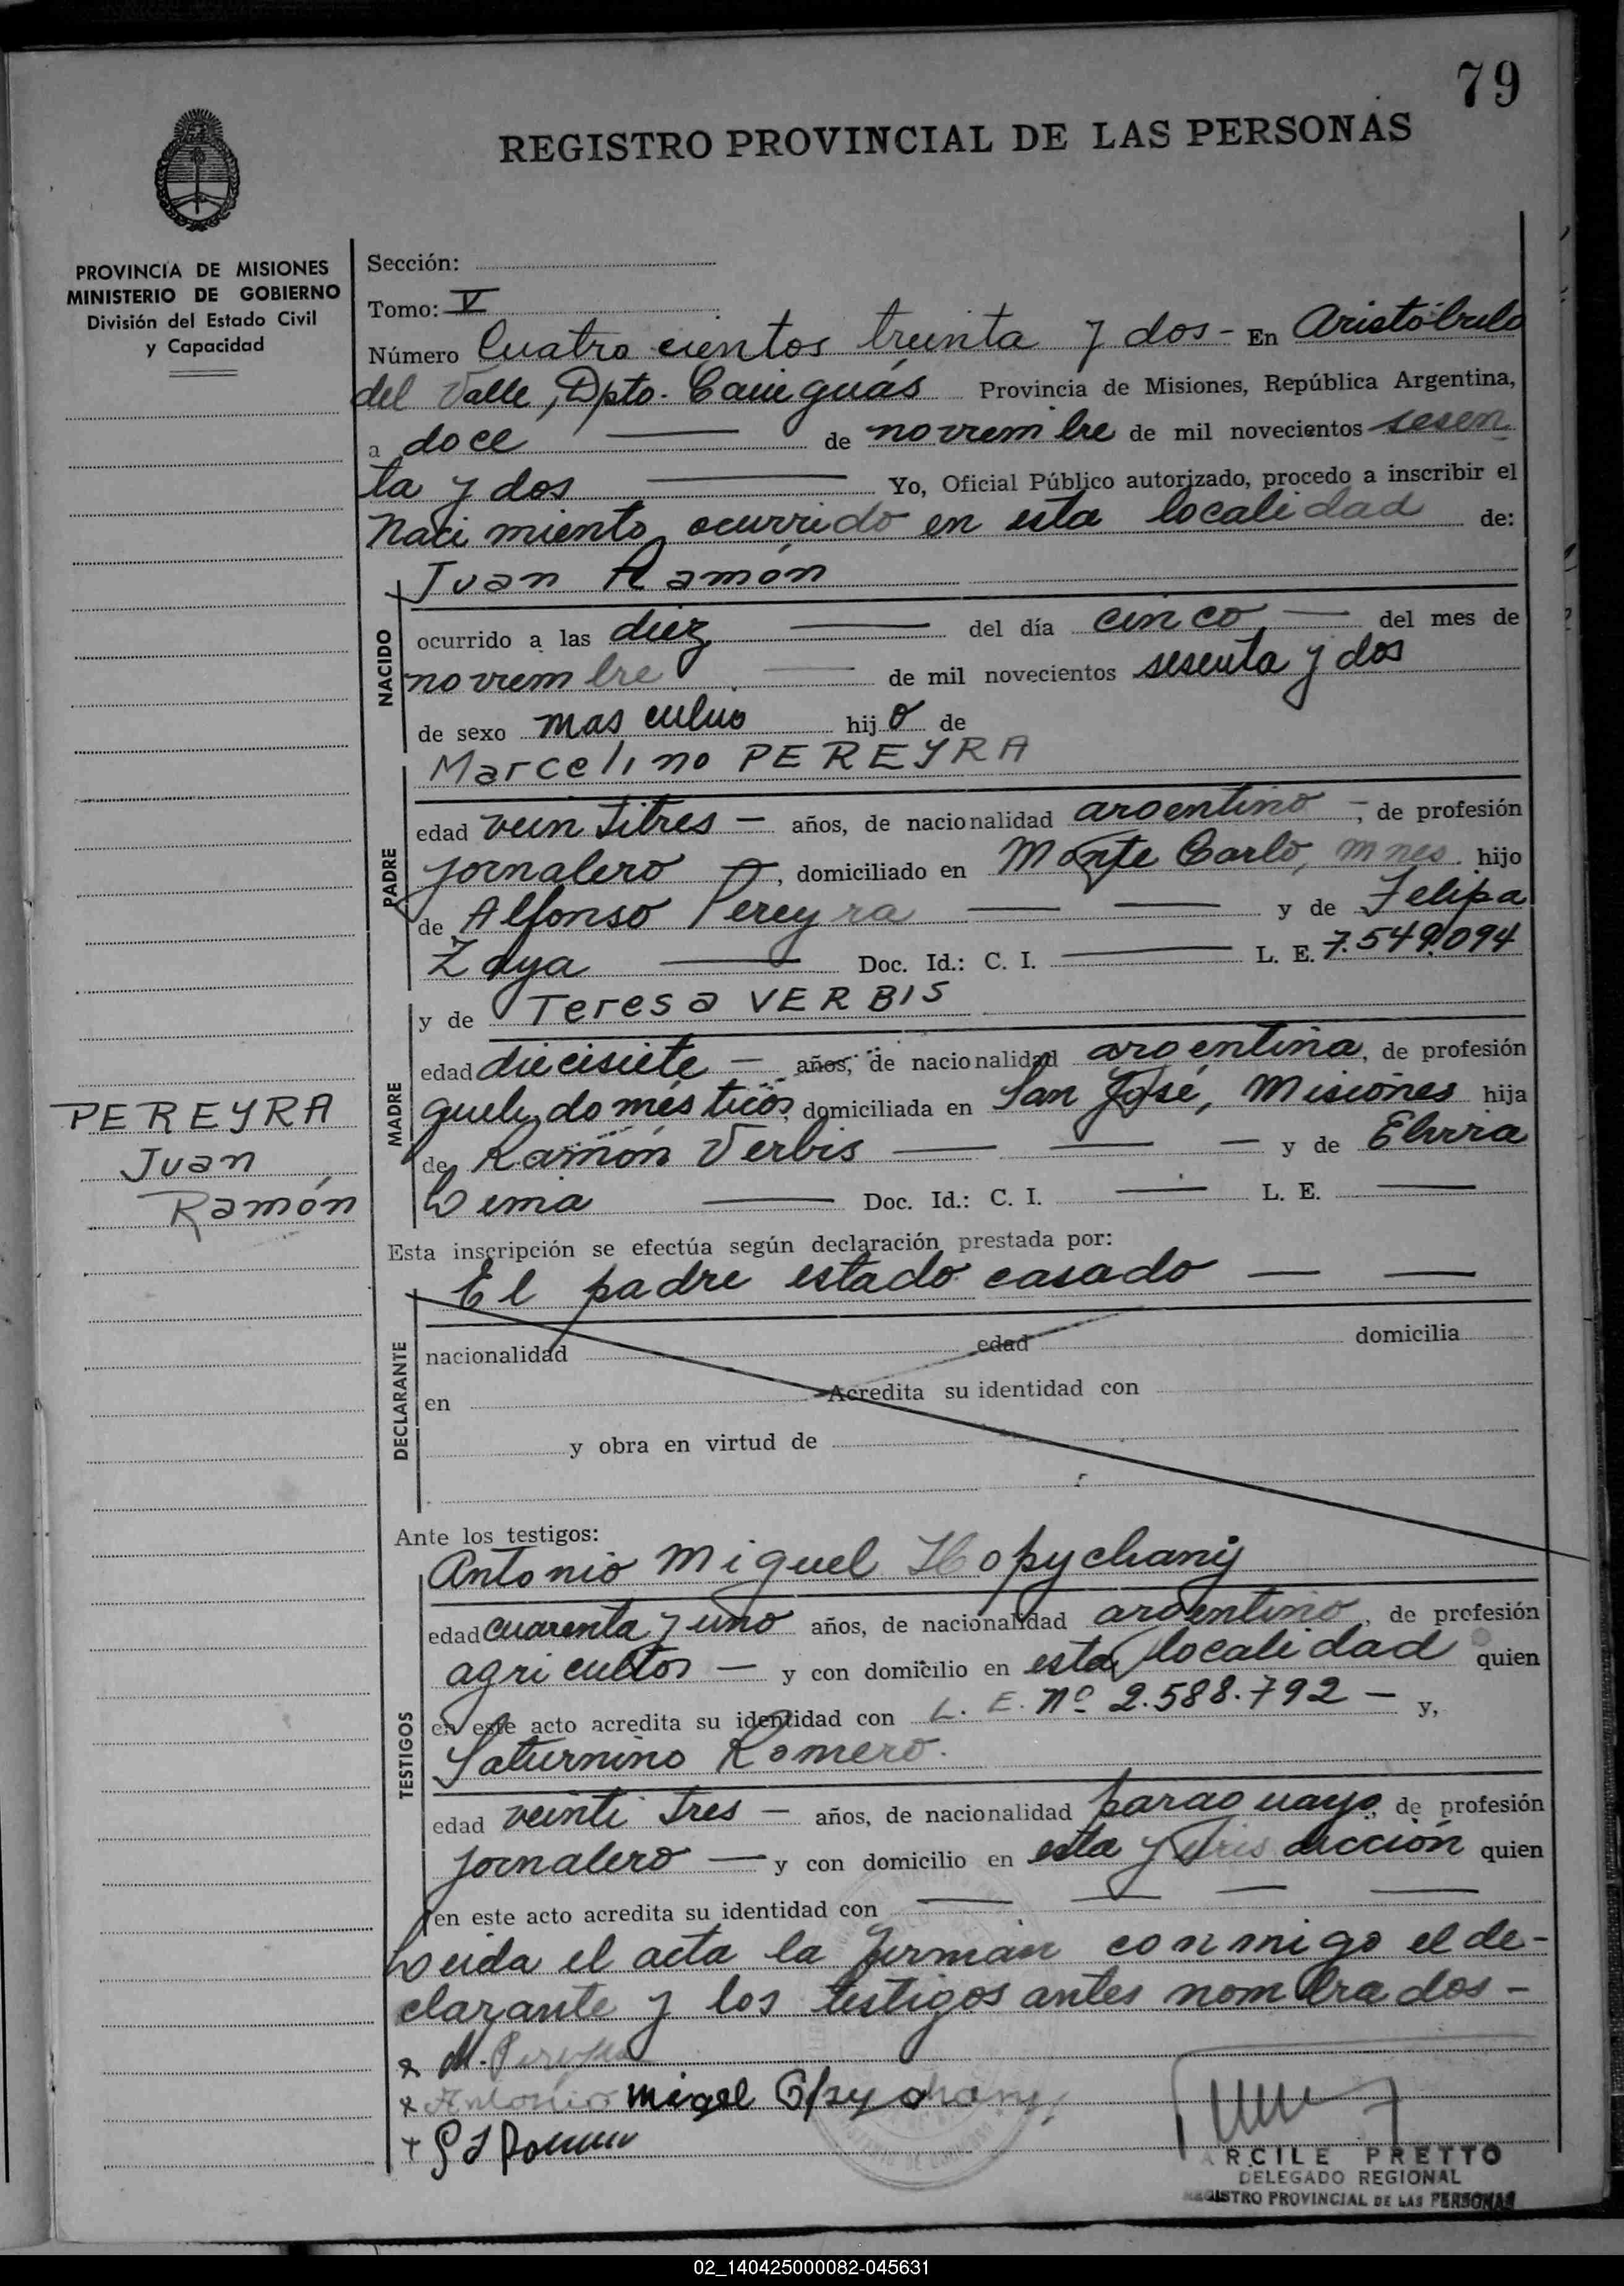 79
REGISTRO PROVINCIAL DE LAS PERSONAS
PROVINCIA DE MISIONES
MINISTERIO DE GOBIERNO
División del Estado Civil
y Capacidad
Sección:
Tomo: V
Número Cuatro cientos treinta y dos - En Aristóbulo
del Valle, Dpto. Cainguás Provincia de Misiones, República Argentina,
a doce — de noviembre de mil novecientos sesen
ta y dos — Yo, Oficial Público autorizado, procedo a inscribir el
Naci miento ocurrido en esta localidad de:
Juan Ramón
NACIDO
ocurrido a las diez — del día cinco — del mes de
noviembre — de mil novecientos sesenta y dos
de sexo masculino hijo de
Marcelino PEREYRA
PADRE
edad veintitres — años, de nacionalidad argentino -, de profesión
jornalero —, domiciliado en Monte Carlo, Mnes. hijo
de Alfonso Pereyra — — y de Felipa
Zaya — Doc. Id.: C. I. — L. E. 7.549.094
y de Teresa VERBIS
MADRE
edad diecisiete — años, de nacionalidad argentina, de profesión
queh. domésticos, domiciliada en San José, Misiones hija
de Ramón Verbis — — — y de Elvira
Lema — Doc. Id.: C. I. — L. E. —
PEREYRA
Juan
Ramón
Esta inscripción se efectúa según declaración prestada por:
El padre estado casado — —
DECLARANTE
nacionalidad edad domicilia
en Acredita su identidad con
y obra en virtud de
Ante los testigos:
Antonio Miguel Hopychany
TESTIGOS
edad cuarenta y uno años, de nacionalidad argentino, de profesión
agricultor — y con domicilio en esta localidad quien
en este acto acredita su identidad con L. E. Nº 2.588.792 — y,
Saturnino Romero.
edad veinti tres — años, de nacionalidad paraguayo, de profesión
jornalero — y con domicilio en esta jurisdicción quien
en este acto acredita su identidad con — — — —
Leida el acta la firman conmigo el de-
clarante y los testigos antes nombrados -
x M. Pereyra
x Antonio Migel
+ S
ARCILE PRETTO
DELEGADO REGIONAL
REGISTRO PROVINCIAL DE LAS PERSONAS
02_140425000082-045631